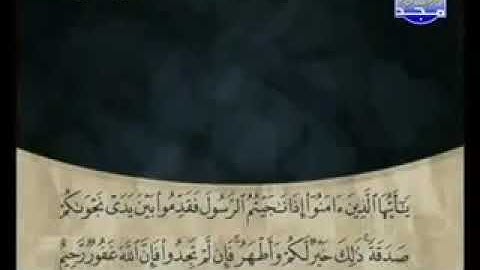 المجد
يَـٰٓأَيُّهَا ٱلَّذِينَ ءَامَنُوٓا۟ إِذَا نَـٰجَيْتُمُ ٱلرَّسُولَ فَقَدِّمُوا۟ بَيْنَ يَدَىْ نَجْوَىٰكُمْ
صَدَقَةً ۚ ذَٰلِكَ خَيْرٌ لَّكُمْ وَأَطْهَرُ ۚ فَإِن لَّمْ تَجِدُوا۟ فَإِنَّ ٱللَّهَ غَفُورٌ رَّحِيمٌ